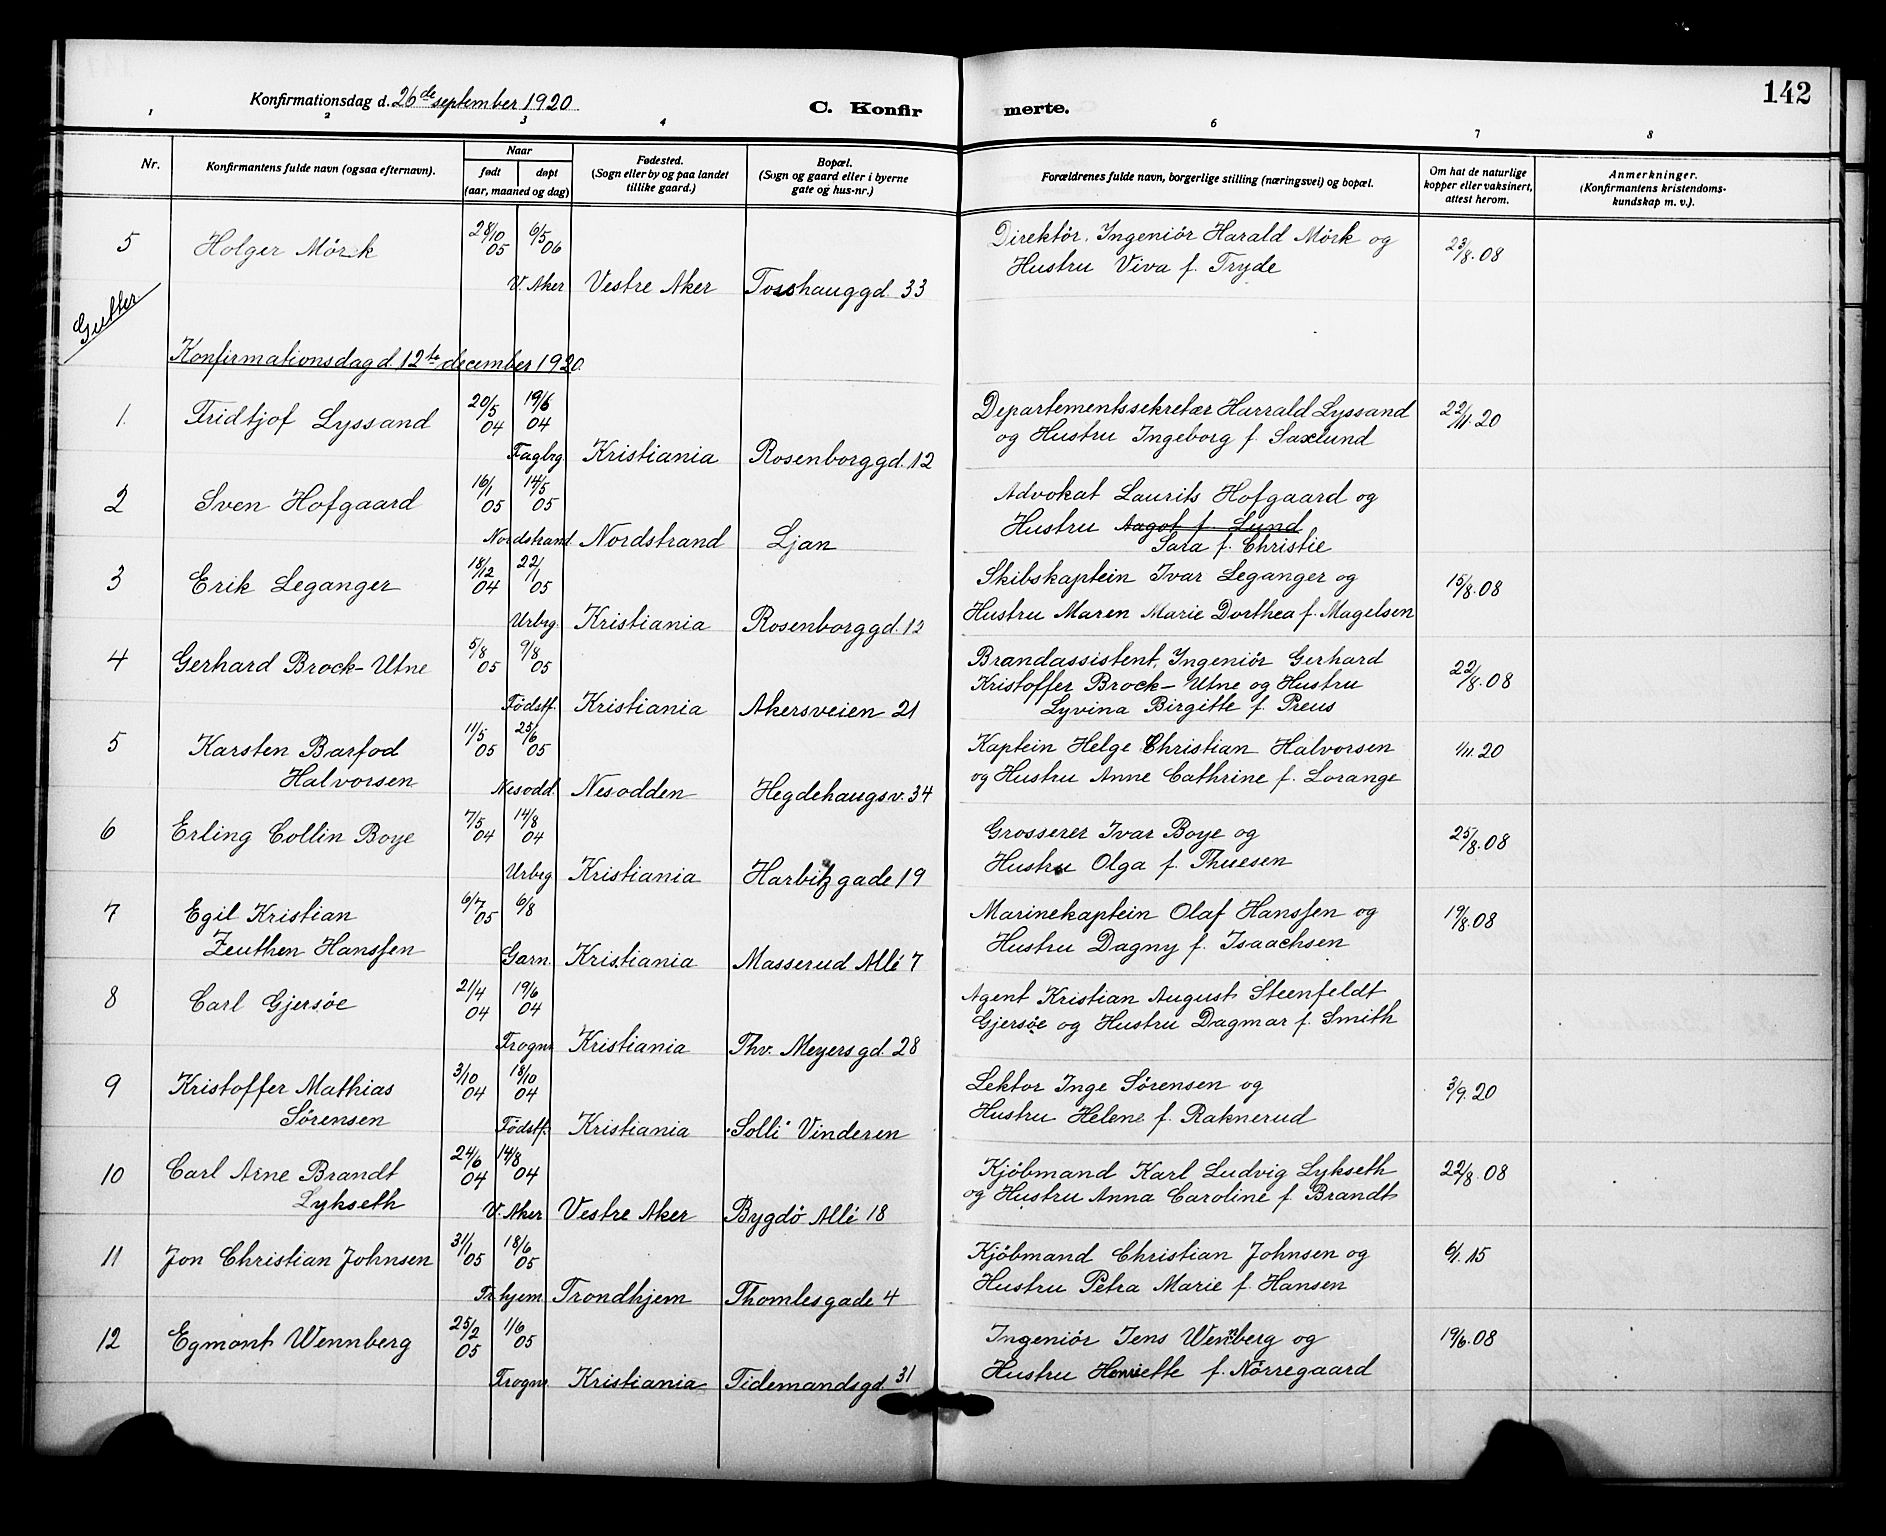 142
Konfirmationsdag d. 26de september 1920 C. Konfirmerte.
1 2 3 4 6 7 8
Nr.
Konfirmantens fulde navn (ogsaa efternavn).
Naar
født døpt
(aar, maaned og dag)
Fødested.
(Sogn eller by og paa landet
tillike gaard.)
Bopæl.
(Sogn og gaard eller i byerne
gate og hus-nr.)
Forældrenes fulde navn, borgerlige stilling (næringsvei) og bopæl.
Om hat de naturlige
kopper eller vaksinert,
attest herom.
Anmerkninger.
(Konfirmantens kristendoms-
kundskap m. v.).
5 Holger Mörk 28/10 05 6/5 06 Direktör, Ingeniör Harald Mörk og 23/8.08
Hustru Viva f. Tryde
V. Aker Vestre Aker 33
Gutter
Konfirmationsdag d. 12te december 1920
1. Fridtjof Lyssand 20/5 04 19/6 04 Departementssekretær Harrald Lyssand 22/11.20
og Hustru Ingeborg f. Saxlund
Fagbrg Kristiania Rosenborggd. 12
2 Sven Hofgaard 16/1 05 14/5 05 Advokat Laurits Hofgaard og
Hustru Aagot f. Lund
Sara f. Christie
Nordstrand Nordstrand Ljan
3 Erik Leganger 18/12 04 22/1 05 Skibskaptein Ivar Leganger og 15/8.08
Hustru Maren Marie Dorthea f. Magelsen
Urbrg. Kristiania Rosenborggd. 12
4 Gerhard Brock-Utne 5/8 05 9/8 05 Brandassistent, Ingeniör Gerhard 22/8.08
Kristoffer Brock-Utne og Hustru
Lyvina Birgitte f. Preus
Födstf. Kristiania Akersveien 21
5 Karsten Barfod 11/5 05 25/6 05 Kaptein Helge Christian Halvorsen 1/11.20
Halvorsen og Hustru Anne Cathrine f. Lorange
Nesodd. Nesodden Hegdehaugsv. 34
6 Erling Collin Boye 7/5 04 14/8 04 Grosserer Ivar Boye og 25/8.08
Hustru Olga f. Thuesen
Urbrg Kristiania Harbitzgade 19
7 Egil Kristian 6/7 05 6/8 Marinekaptein Olaf Hanssen og 19/8.08
Zeuthen Hanssen Hustru Dagny f. Isaachsen
Garn. Kristiania Masserud Allé 7
8 Carl Gjersöe 21/4 04 19/6 04 Agent Kristian August Steenfeldt
Gjersöe og Hustru Dagmar f. Smith
Frognr Kristiania Thv. Meyersgd. 28
9 Kristoffer Mathias 3/10 04 18/10 04 Lektor Inge Sörensen og 3/9.20
Sörensen Hustru Helene f. Raknerud
Födstf. Kristiania "Solli" Vinderen
10 Carl Arne Brandt 24/6 04 14/8 04 Kjöbmand Karl Ludvig Lykseth 22/8.08
Lykseth og Hustru Anna Caroline f. Brandt
V. Aker Vestre Aker Bygdö Allé 18
11 Jon Christian Johnsen 31/1 05 18/6 05 Kjöbmand Christian Johnsen og 6/1.15
Hustru Petra Marie f. Hansen
Tr.hjem Trondhjem Thomlesgade 4
12 Egmont Wennberg 25/2 05 1/6 05 Ingeniör Jens Wennberg og 19/6.08
Hustru Henriette f. Nörregaard
Frognr Kristiania Tidemandsgd. 31